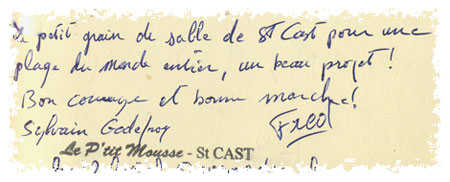 Le petit grain de salle de St Cast pour une
plage du monde entier, un beau projet!
Bon courage et bonne marche!
Sylvain Godefroy Fred
Le P'tit Mousse - St CAST